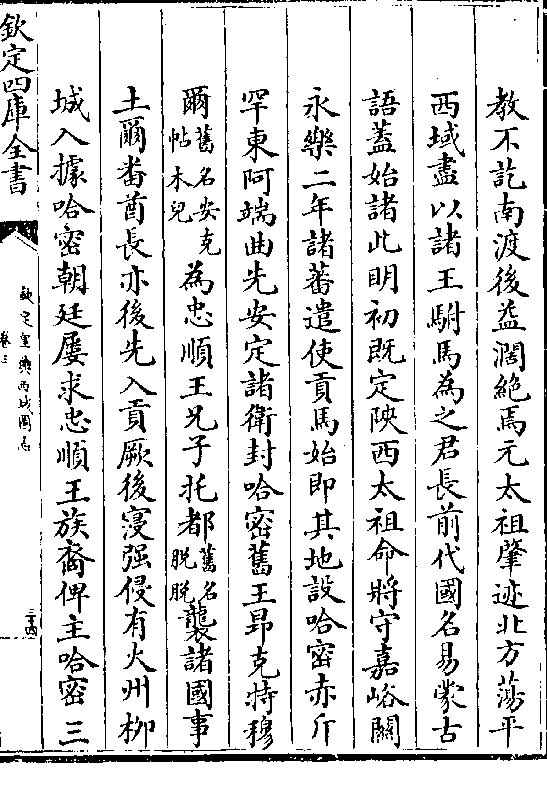 教不訖南渡後益濶絶焉元太祖肇迹北方蕩平
西域盡以諸王駙馬為之君長前代國名易蒙古
語蓋始諸此明初既定陜西太祖命將守嘉峪關
永樂二年諸蕃遣使貢馬始即其地設哈密赤斤
罕東阿端曲先安定諸衛封哈密舊王昂克特穆
爾舊名安克帖木兒為忠順王兄子托都舊名脱脱襲諸國事
土爾番酋長亦後先入貢厥後寖强侵有火州柳
城入據哈密朝廷屢求忠順王族裔俾主哈密三
欽定四庫全書
欽定皇輿西域圖志
卷三
三十四